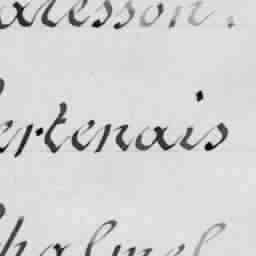 alesson.
ertenais
halmel